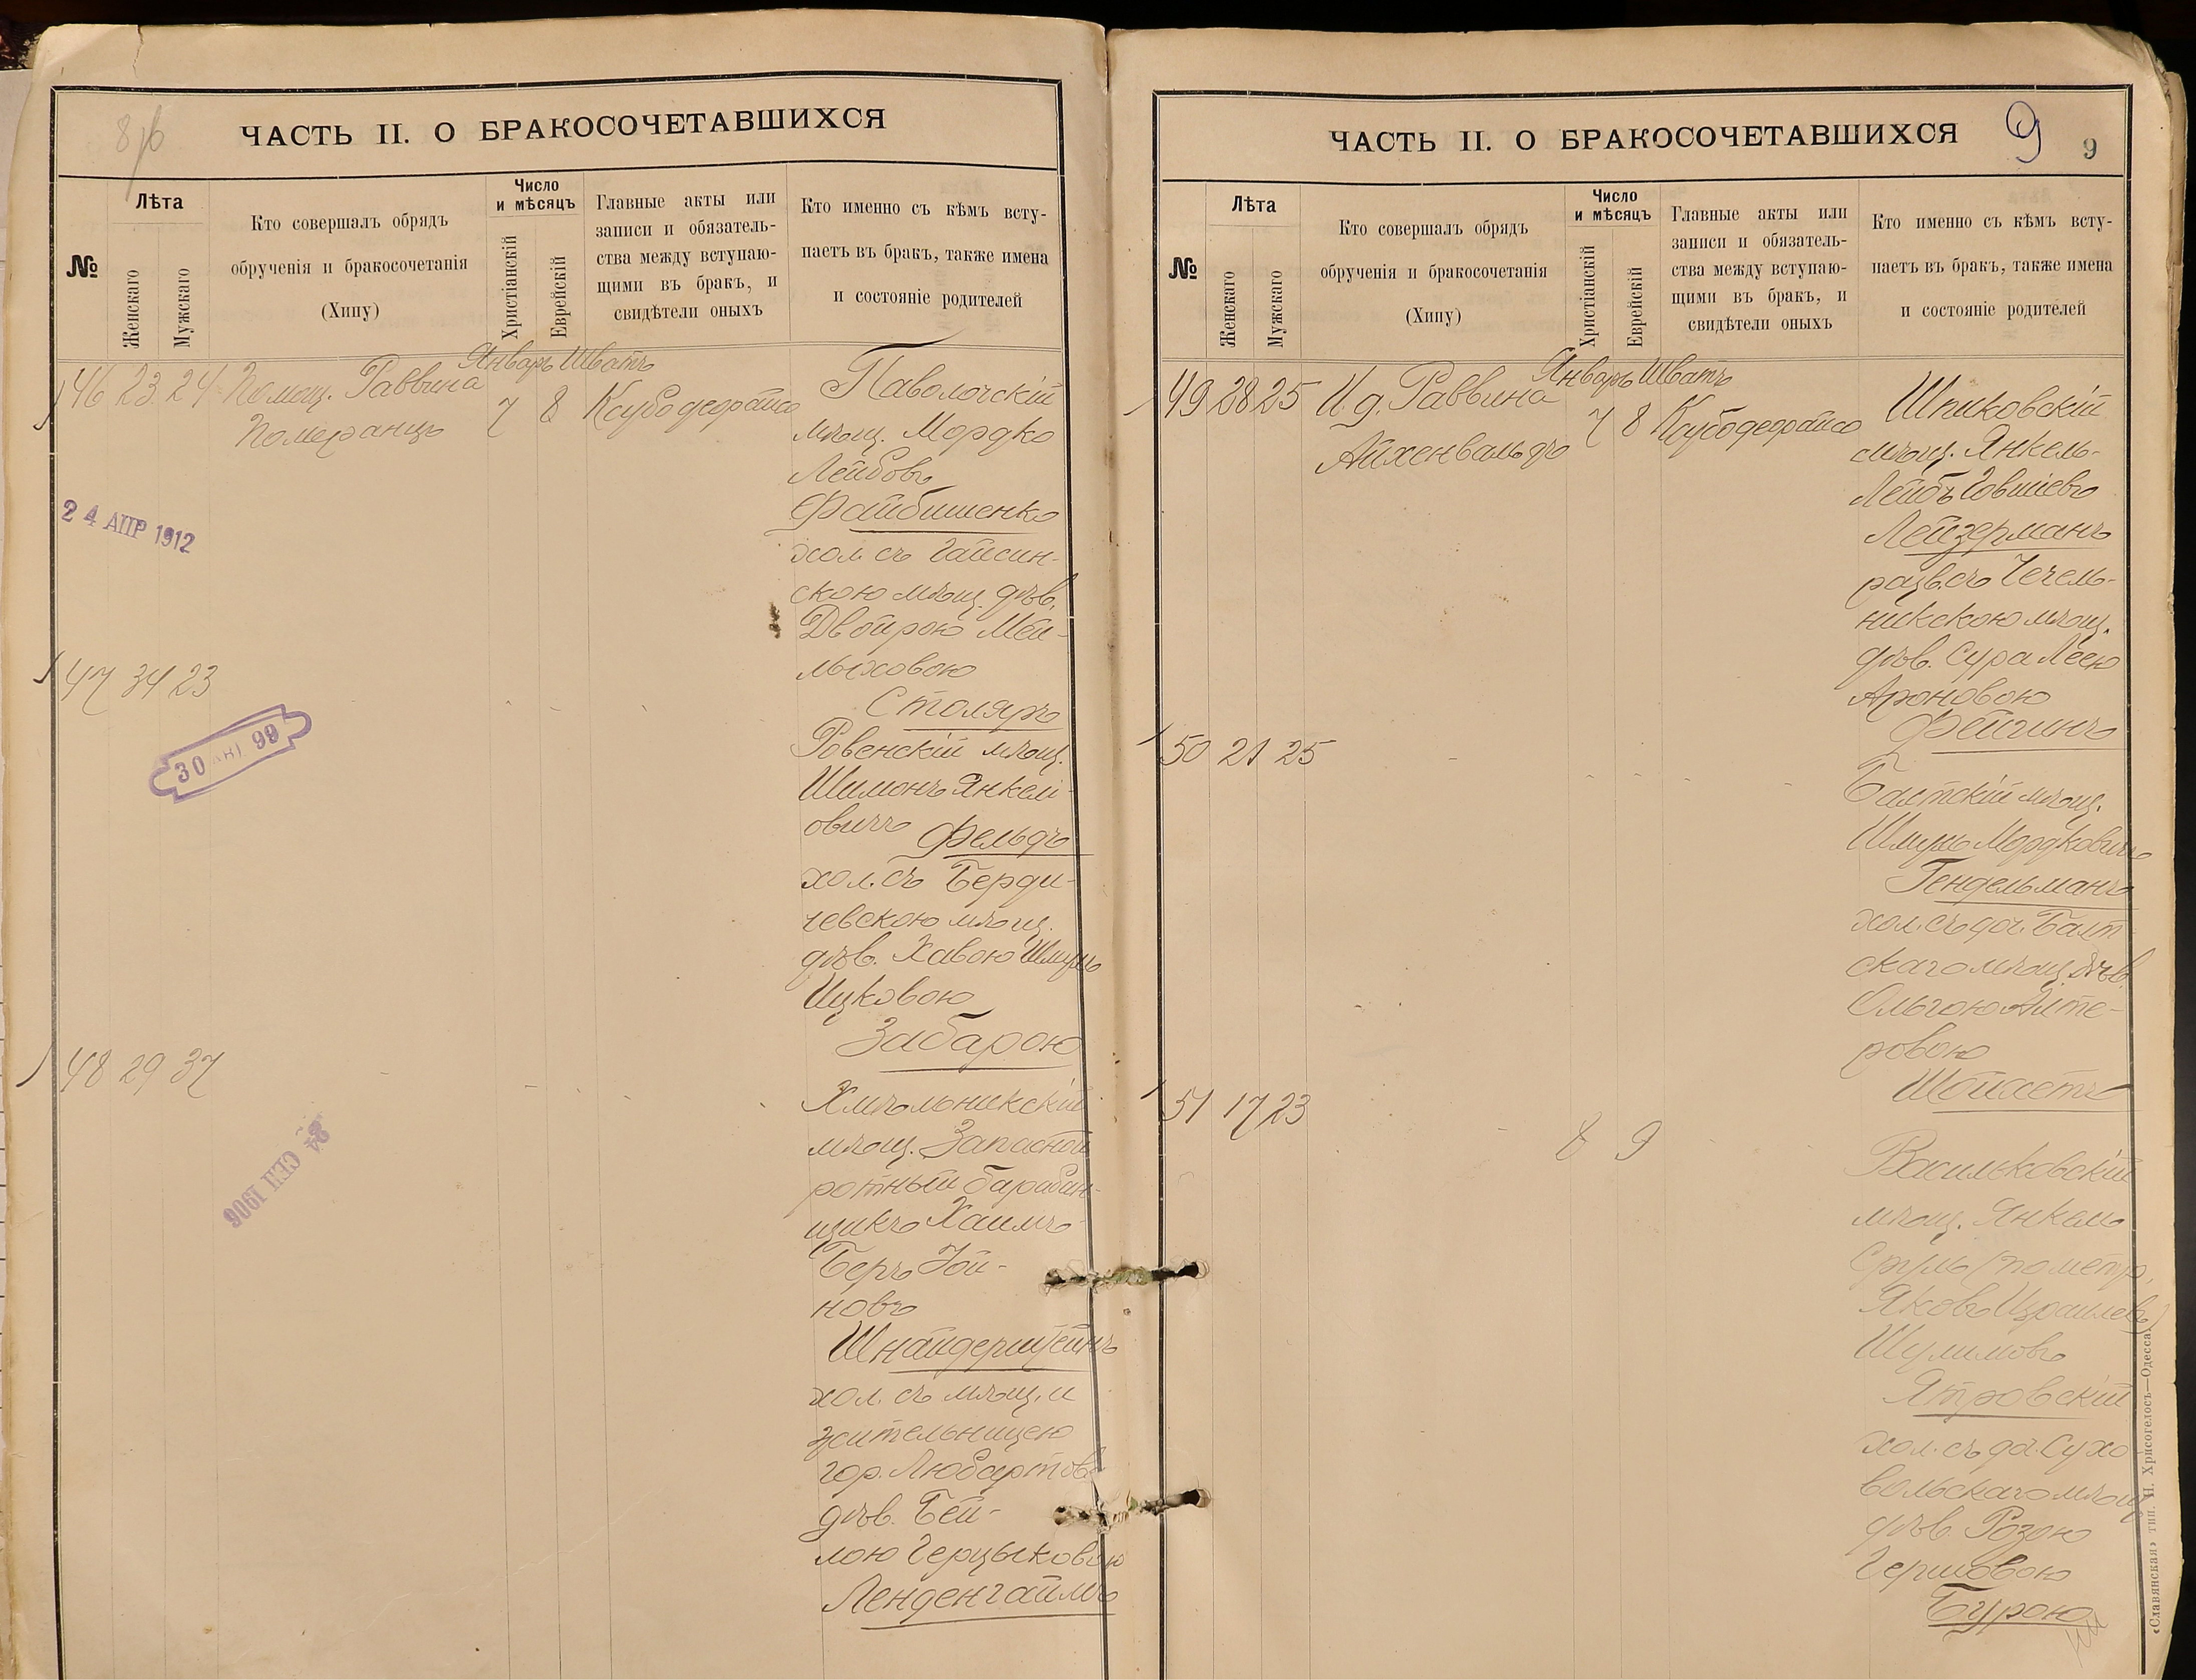 8 об
ЧАСТЬ II. О БРАКОСОЧЕТАВШИХСЯ
№
Лѣта
Женскаго
Мужскаго
Кто совершалъ обрядъ
обрученія и бракосочетанія
(Хипу)
Число
и мѣсяцъ
Христіанскій
Еврейскій
Главные акты или
записи и обязатель-
ства между вступаю-
щими въ бракъ, и
свидѣтели оныхъ
Кто именно съ кѣмъ всту-
паетъ въ бракъ, также имена
и состояніе родителей
Январь Шватъ
46 23 24 Помощ. Раввина
Померанцъ
7 8
Паволочскій
мѣщ. Мордко
Лейбовъ
Файбишенко
хол. съ Гайсин-
скою мѣщ. дѣв.
Двойрою Мей-
лыховою
Столяръ
24 АПР 1912
47 34 23
Ровенскій мѣщ.
Шимонъ Янкел-
овичъ Фельдъ
хол. съ Берди-
чевскою мѣщ.
дѣв. Хавою Шмуль
Ицковою
Забарою
30 99
48 29 37
Хмѣльникскій
мѣщ. Запасной
ротный барабан-
щикъ Хаимъ-
Беръ Іой-
новъ
Шнайдерштейнъ
хол. съ мѣщ. и
жительницею
гор. Любартовъ
дѣв. Бей-
лою Герцыковою
Ленденгаймъ
24 СЕН 1906
ЧАСТЬ II. О БРАКОСОЧЕТАВШИХСЯ
9
9
№
Лѣта
Женскаго
Мужскаго
Кто совершалъ обрядъ
обрученія и бракосочетанія
(Хипу)
Число
и мѣсяцъ
Христіанскій
Еврейскій
Главные акты или
записи и обязатель-
ства между вступаю-
щими въ бракъ, и
свидѣтели оныхъ
Кто именно съ кѣмъ всту-
паетъ въ бракъ, также имена
и состояніе родителей
Январь Шватъ
49 28 25 И. д. Раввина
Айхенвальдъ
7 8
Шпиковскій
мѣщ. Янкель-
Лейбъ Іовшіевъ
Лейзерманъ
разв. съ Чечель-
никскою мѣщ.
дѣв. Сура Леею
Ароновою
Фейгинъ
50 21 25
Балтскій мѣщ.
Шмуль Мордковичъ
Гендельманъ
хол. съ доч. Балт
скаго мѣщ. дѣв.
Ольгою Алте-
ровою
Шойхетъ
51 17 23
8 9
Васильковскій
мѣщ. Янкель
Сруль (по метр.
Яковъ Израилевъ)
Шулимовъ
Ятровскій
хол. съ доч. Сухо
вольскаго мѣщ
дѣв. Розою
Гершовою
Бурою
«Славянская» тип. Н. Хрисогелосъ—Одесса.